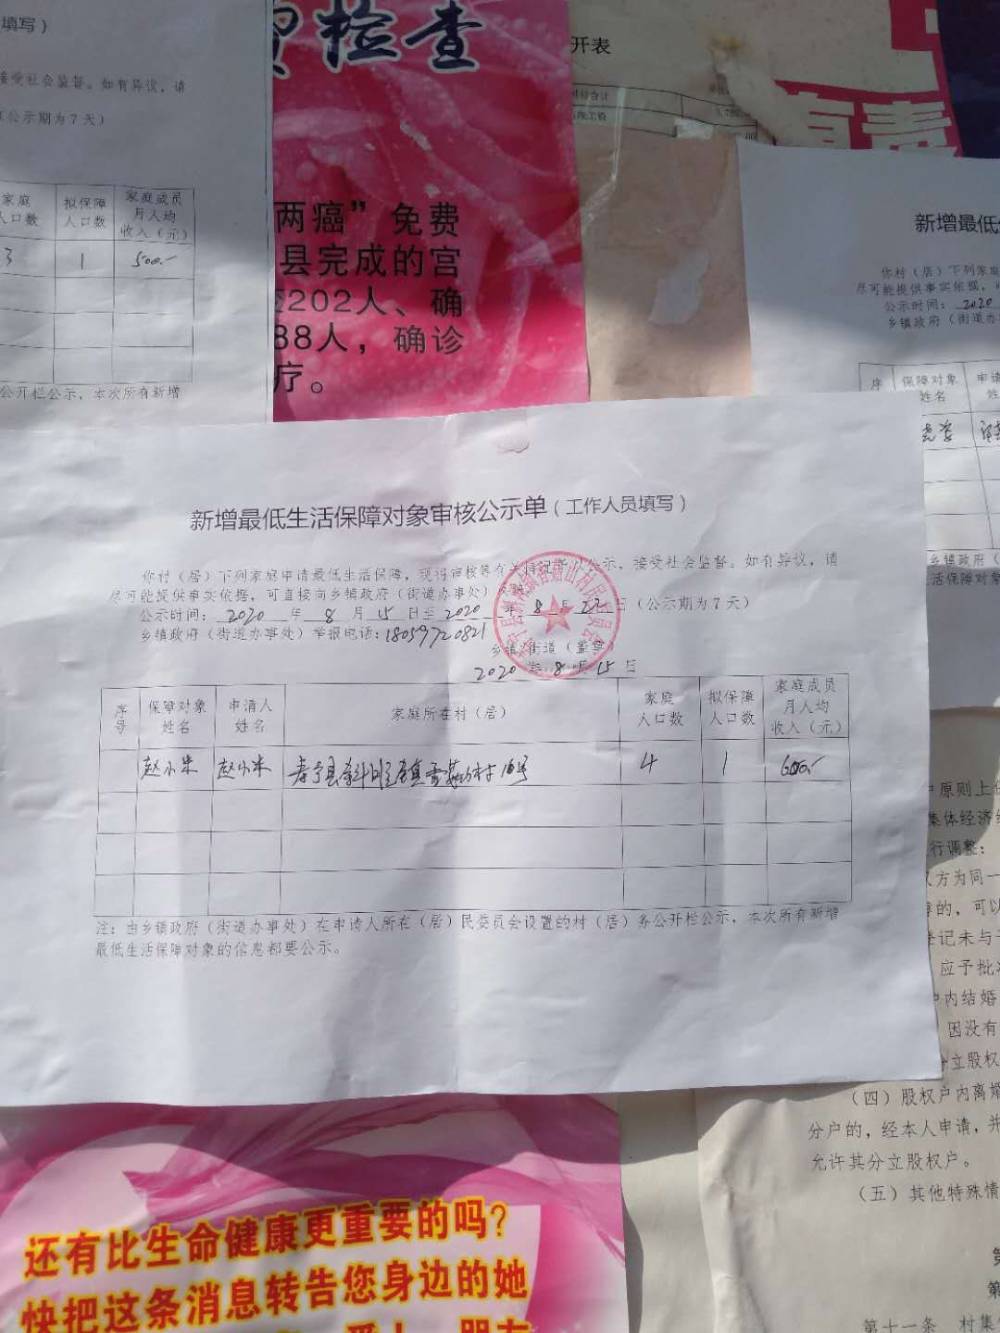 填写）
接受社会监督。如有异议，请
（公示期为7天）
家庭
人口数
拟保障
人口数
家庭成员
月人均
收入（元）
3
1
500.-
公开栏公示，本次所有新增
检查
两癌”免费
县完成的宫
202人、确
88人，确诊
疗。
开表
新增最低
你村（居）下列家庭
尽可能提供事实依据，
公示时间：2020
乡镇政府（街道办
序
保障对象
姓名
申请
姓
乡镇政府（
生活保障对象
新增最低生活保障对象审核公示单（工作人员填写）
你村（居）下列家庭申请最低生活保障，现将审核等有关情况予以公示，接受社会监督。如有异议，请
尽可能提供事实依据，可直接向乡镇政府（街道办事处）
公示时间：2020年8月15日至2020年8月22日（公示期为7天）
乡镇政府（街道办事处）举报电话：18059720821
乡镇/街道（盖章）
2020年8月15日
序号
保障对象
姓名
申请人
姓名
家庭所在村（居）
家庭
人口数
拟保障
人口数
家庭成员
月人均
收入（元）
赵小米
赵小米
寿宁县
村16号
4
1
600.-
注：由乡镇政府（街道办事处）在申请人所在（居）民委员会设置的村（居）务公开栏公示，本次所有新增
最低生活保障对象的信息都要公示。
原则上
集体经济
行调整：
方为同一
的，可以
登记未与
应予批
内结婚
因没有
分立股权
（四）股权户内离婚
分户的，经本人申请，并
允许其分立股权户。
（五）其他特殊情
第
第十一条 村集
还有比生命健康更重要的吗？
快把这条消息转告您身边的她